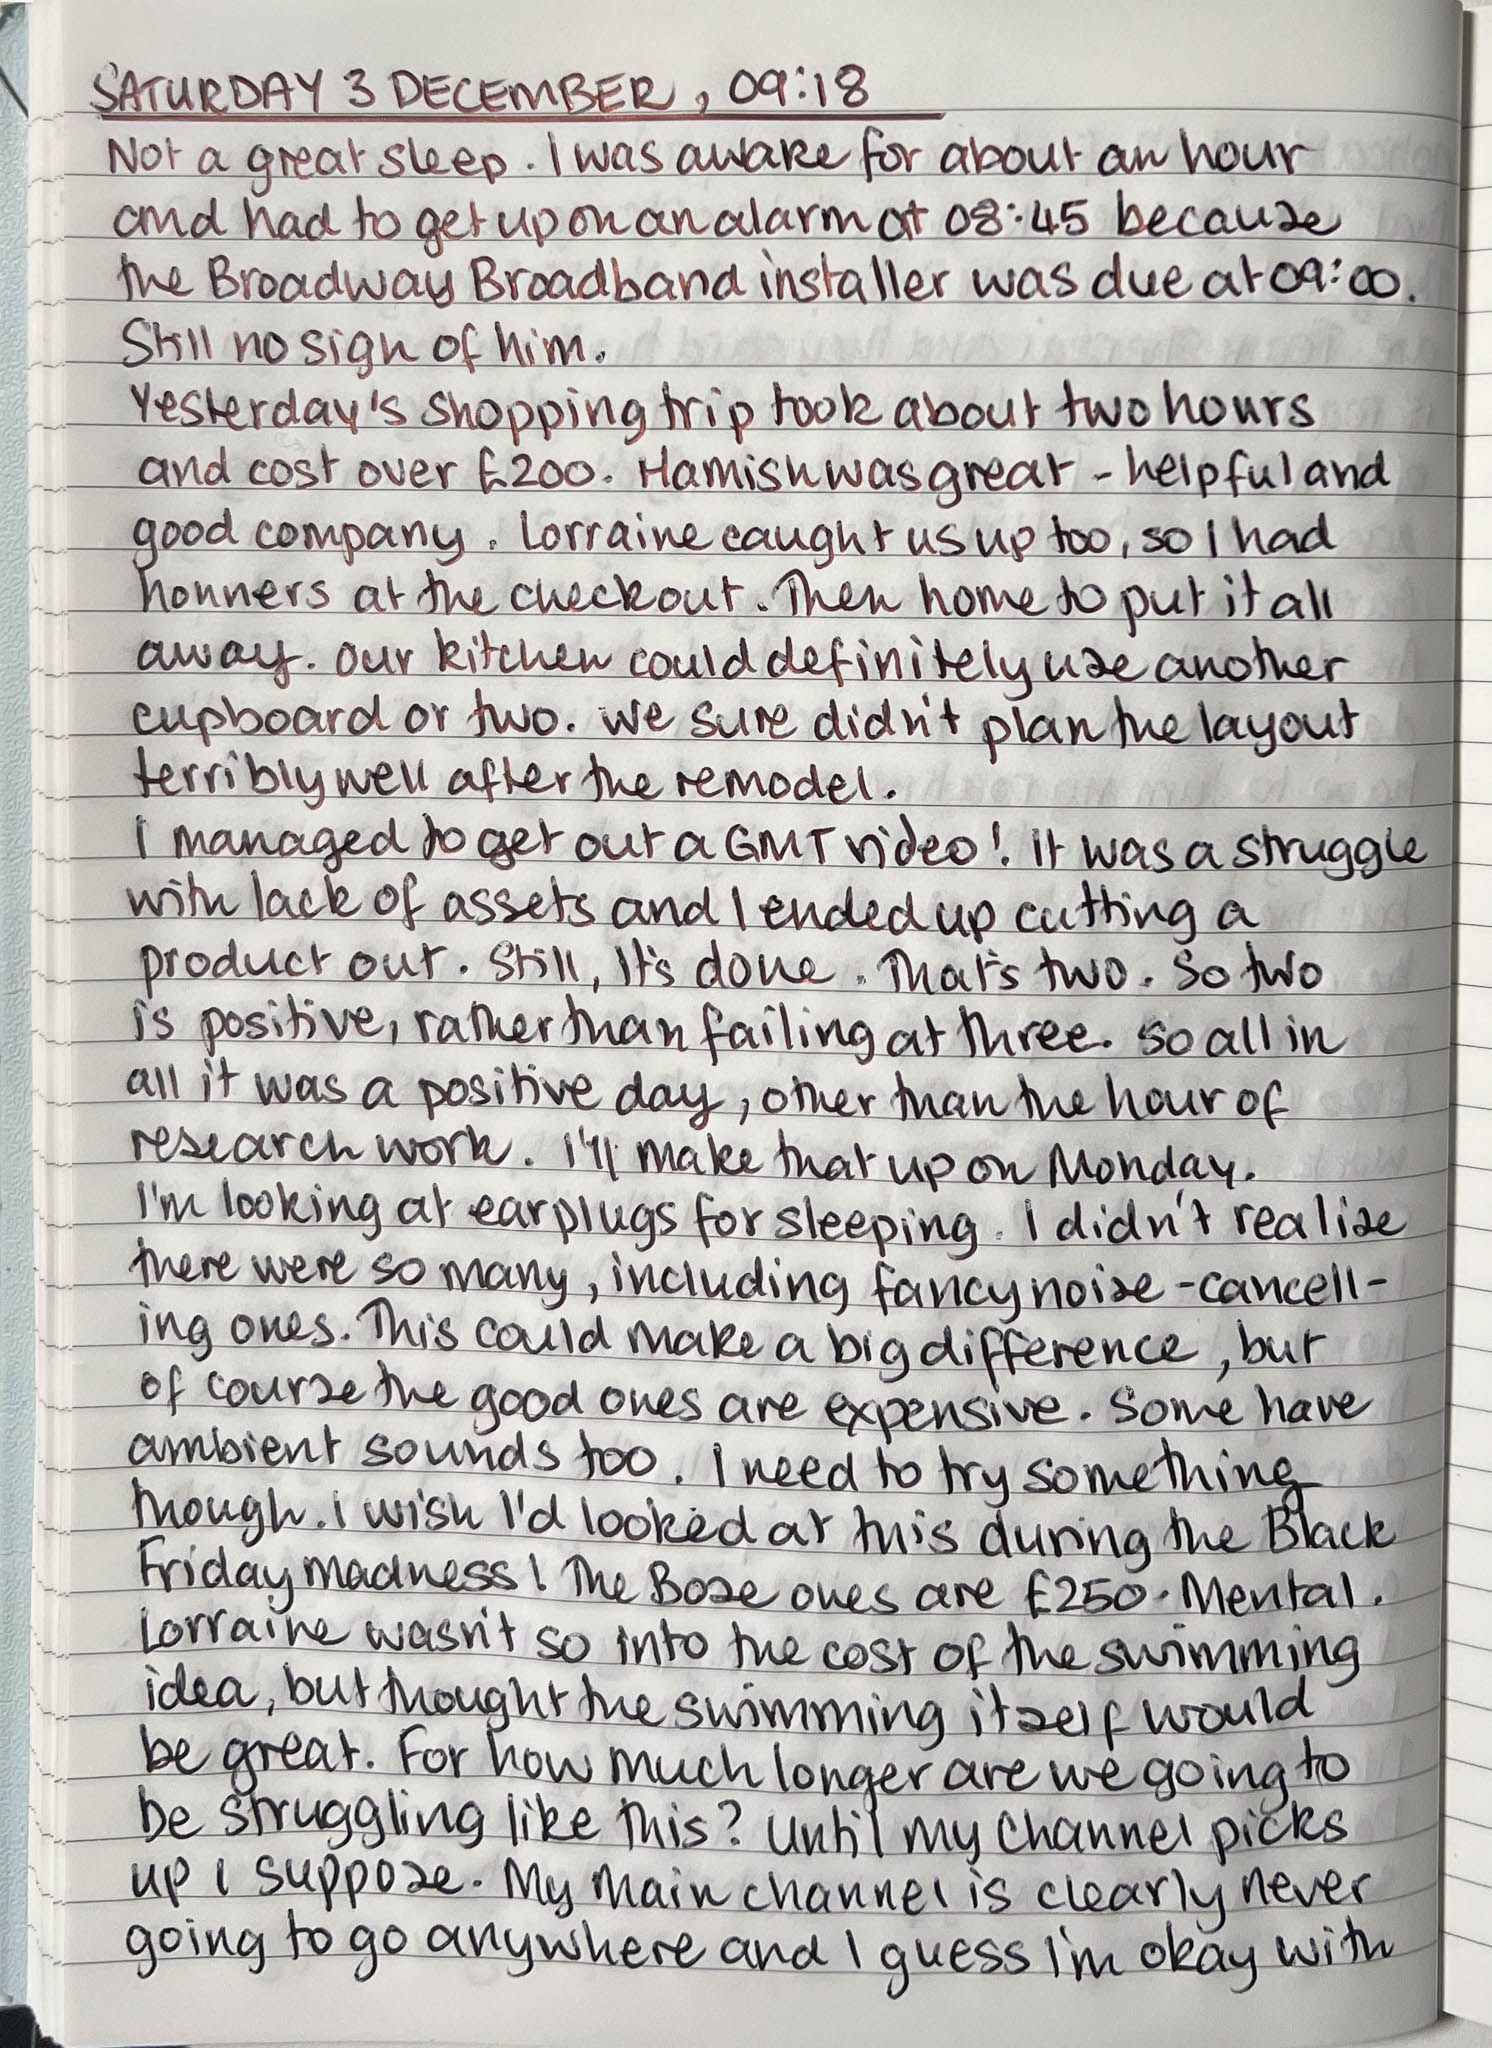 SATURDAY 3 DECEMBER, 09:18
Not a great sleep. I was awake for about an hour
and had to get up on an alarm at 08:45 because
the Broadway Broadband installer was due at 09:00.
Still no sign of him.
Yesterday's shopping trip took about two hours
and cost over £200. Hamish was great - helpful and
good company. Lorraine caught us up too, so I had
honners at the checkout. Then home to put it all
away. Our kitchen could definitely use another
cupboard or two. We sure didn't plan the layout
terribly well after the remodel.
I managed to get out a GMT video! It was a struggle
with lack of assets and I ended up cutting a
product out. Still, it's done. That's two. So two
is positive, rather than failing at three. So all in
all it was a positive day, other than the hour of
research work. I'll make that up on Monday.
I'm looking at earplugs for sleeping. I didn't realise
there were so many, including fancy noise-cancell-
ing ones. This could make a big difference, but
of course the good ones are expensive. Some have
ambient sounds too. I need to try something
though. I wish I'd looked at this during the Black
Friday madness! The Bose ones are £250. Mental.
Lorraine wasn't so into the cost of the swimming
idea, but thought the swimming itself would
be great. For how much longer are we going to
be struggling like this? Until my channel picks
up I suppose. My main channel is clearly never
going to go anywhere and I guess I'm okay with